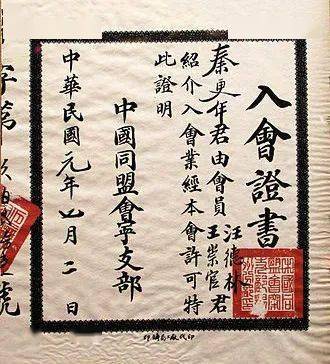 入會證書
秦更年君由會員汪德林王崇官君
紹介入會業經本會許可特
此證明
中國同盟會寧支部
中華民國元年四月二日
字第
號